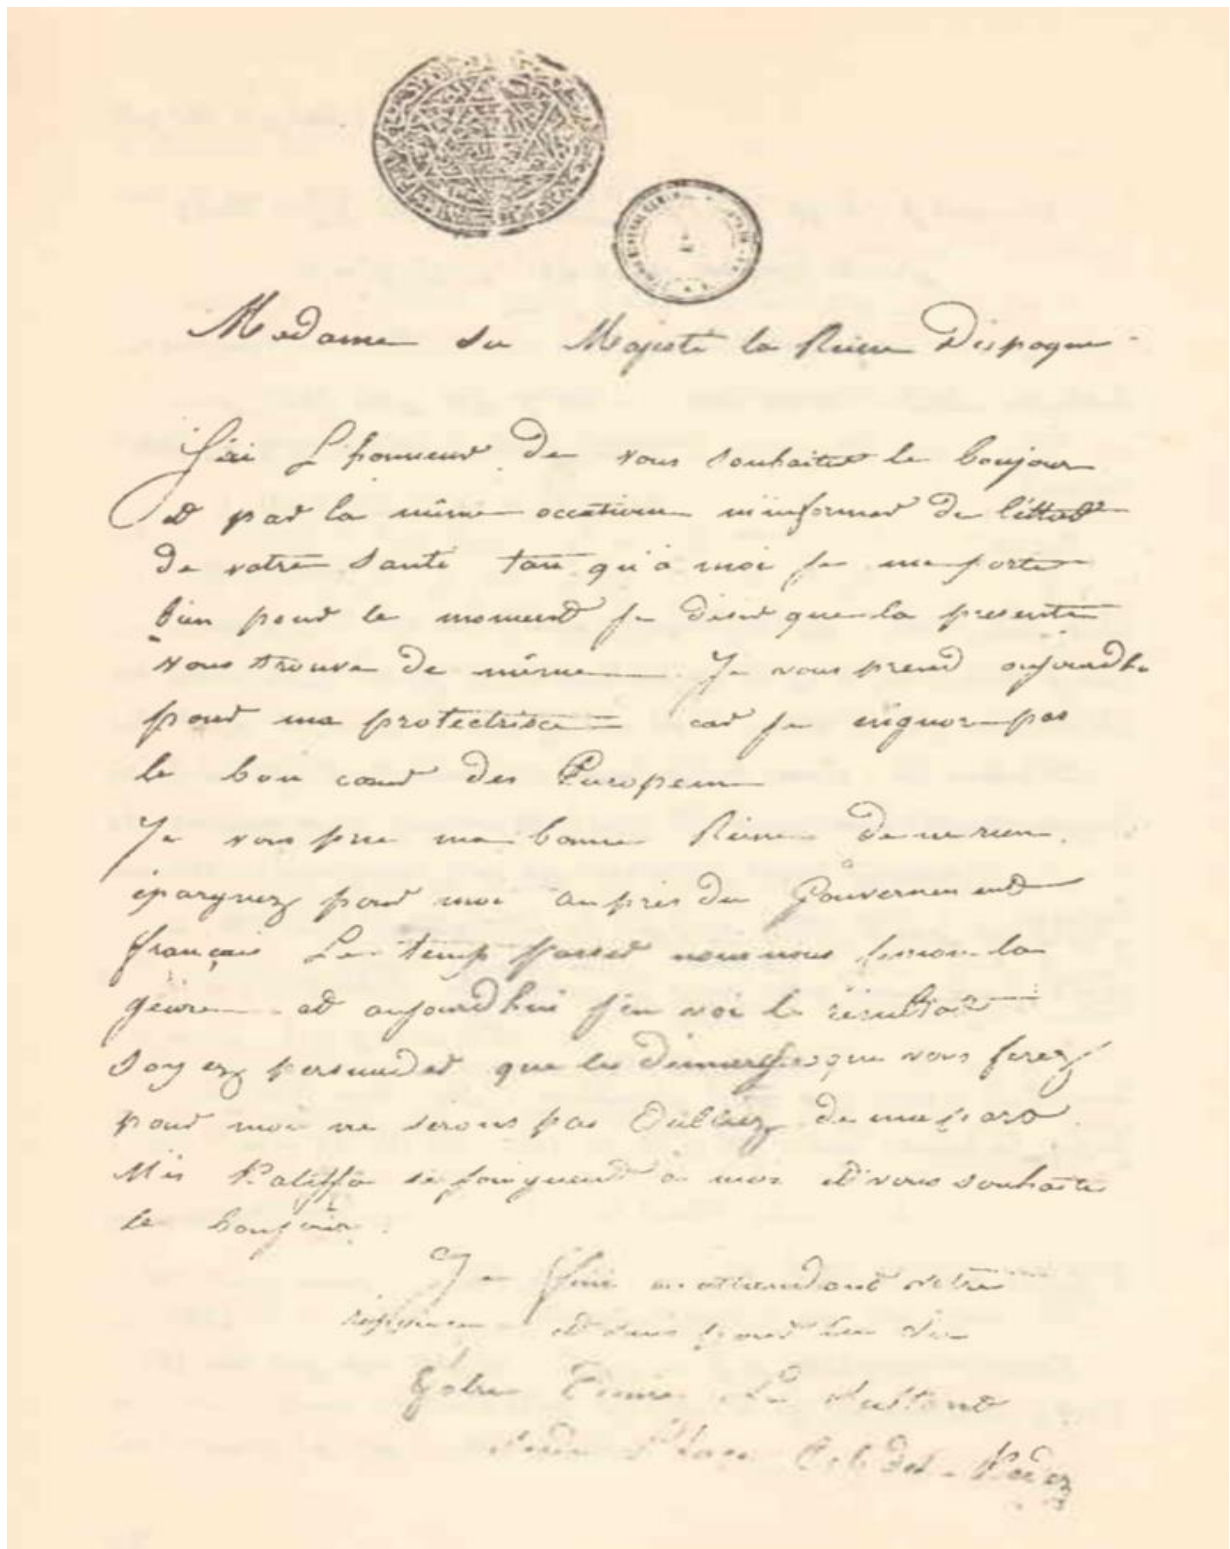 Madame sa Majesté la Reine Dispagne
J'ai L'honneur De vous souhaiter le bonjour
et par la même occation m'informer De l'ettat
De votre Santé tant qu'a moi je me porte
bien pour le moment je Désir que la presente
vous trouve De même Je vous prend aujourdh
pour ma protectrise car je n'ignore pas
le bon cœur des Européen
Je vous prie ma bonne Reine De ne rien
épargnez pour moi auprès du Gouvernement
français Le temp passer nous nous fesion la
géure et aujourdhui j'en voi le résultat
Soyez persuader que les démarches que vous ferez
pour moi ne serons pas Oubliez de ma part
Mes Kaliffa se joignent à moi et vous souhaite
le bonjour.
Je fini en attendant votre
réponse et suis pour la vie
Votre Le Sultant